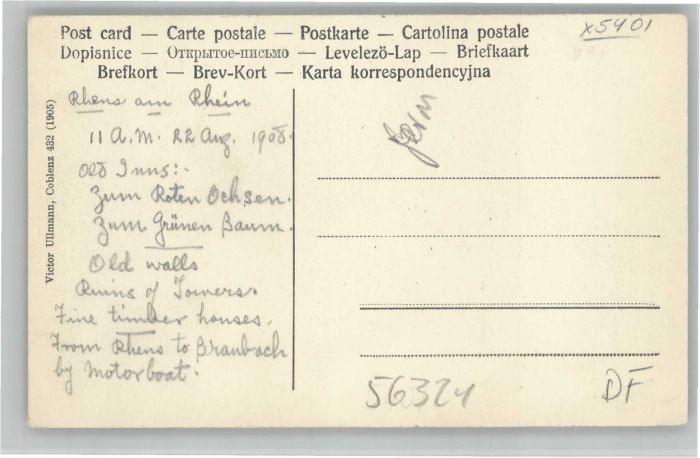 Post card — Carte postale — Postkarte — Cartolina postale
Dopisnice — Открытое-письмо — Levelezö-Lap — Briefkaart
Brefkort — Brev-Kort — Karta korrespondencyjna
x5401
Victor Ullmann, Coblenz 432 (1905)
Rhens am Rhein
11 A.M. 22 Aug. 1908.
Old Inns:-
Zum Roten Ochsen.
Zum Grünen Baum.
Old walls
Ruins of Towers.
Fine timber houses.
From Rhens to Braubach
by Motorboat.
Germ
56324
DF